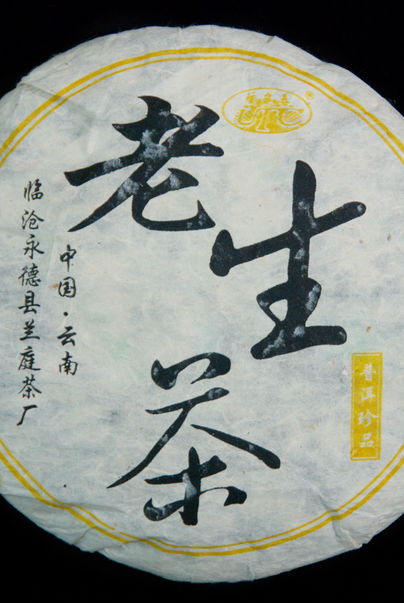 老生茶
普洱珍品
中国·云南
临沧永德县兰庭茶厂
®